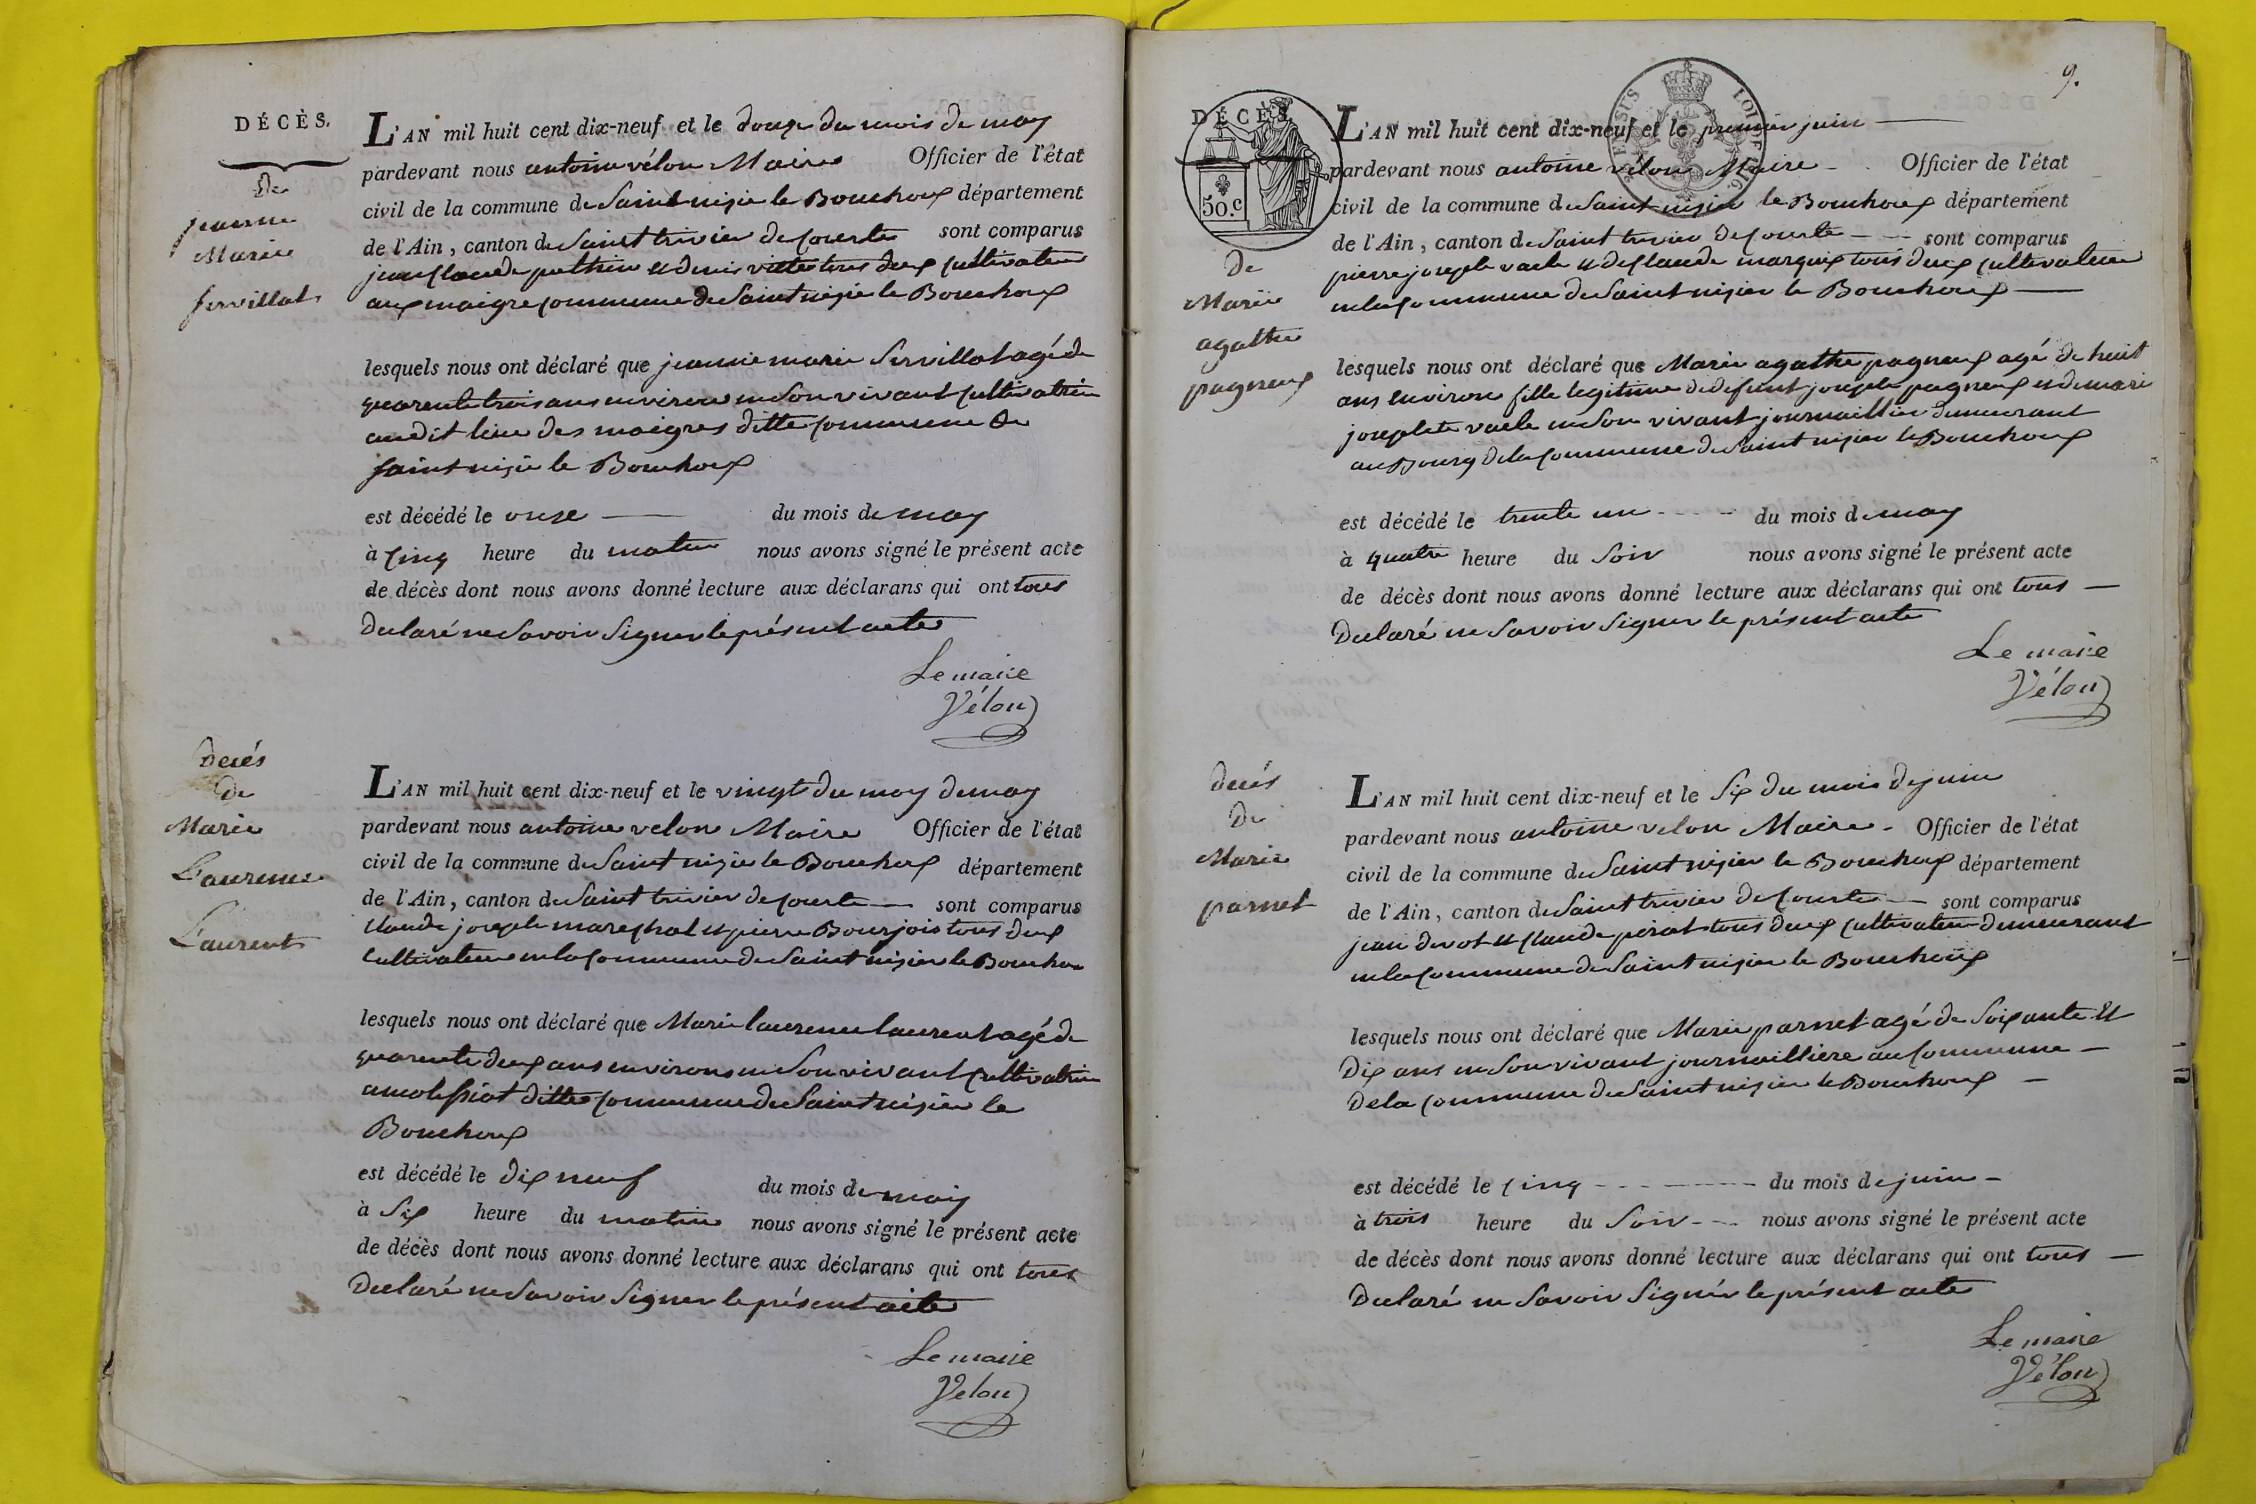 DÉCÈS.
De
jeanne
Marie
servillat
L'AN mil huit cent dix-neuf et le douze du mois de may
pardevant nous antoine vélon Maire Officier de l'état
civil de la commune de Saint nizier le Bouchoux département
de l'Ain, canton de Saint trivier de Courte sont comparus
jean Claude puthin et denis viate tous deux Cultivateur
aux maigre Commune de Saint nizie le Bouchoux
lesquels nous ont déclaré que jeanne marie Servillat agé de
quarente trois ans environ en Son vivant Cultivatrice
au dit lieu des maigres ditte Commune de
saint nizie le Bouchoux
est décédé le onze du mois de may
à Cinq heure du matin nous avons signé le présent acte
de décès dont nous avons donné lecture aux déclarans qui ont tous
Declaré ne Savoir Signer le présent acte
Le maire
Vélon
Decés
de
Marie
Laurence
Laurent
L'AN mil huit cent dix-neuf et le vingt du moy de may
pardevant nous antoine velon Maire Officier de l'état
civil de la commune de Saint nizie le Bouchoux département
de l'Ain, canton de Saint trivier de Courte sont comparus
Claude joseph marechal et pierre Bourjois tous deux
Cultivateur en la Commune de Saint nizier le Bouchou
lesquels nous ont déclaré que Marie laurence laurent agé de
quarente deux ans environs en Son vivant Cultivatrice
au ditte Commune de Saint nizier le
Bouchoux
est décédé le dix neuf du mois de may
à Six heure du matin nous avons signé le présent acte
de décès dont nous avons donné lecture aux déclarans qui ont tous
Declaré ne Savoir Signer le présent acte
Le maire
Velon
9.
DÉCÈS
50.c
LOI DE 1816
De
Marie
agathe
pagneux
L'AN mil huit cent dix-neuf et le premier juin
pardevant nous antoine vélon Maire Officier de l'état
civil de la commune de Saint nizier le Bouchoux département
de l'Ain, canton de Saint trivier de Courte sont comparus
pierre joseph vacle et de Claude marquis tous deux Cultivateur
en la Commune de Saint nizier le Bouchoux
lesquels nous ont déclaré que Marie agathe pagneux agé de huit
ans environ fille legitime de defunt joseph pagneux et de marie
josephte vacle en Son vivant journaillier demeurant
au Bourg de la Commune de Saint nizier le Bouchoux
est décédé le trente un du mois de may
à quatre heure du Soir nous avons signé le présent acte
de décès dont nous avons donné lecture aux déclarans qui ont tous
Declaré ne Savoir Signer le présent acte
Le maire
Vélon
decés
De
Marie
parnet
L'AN mil huit cent dix-neuf et le Six du mois de juin
pardevant nous antoine velon Maire Officier de l'état
civil de la commune de Saint nizier le Bouchoux département
de l'Ain, canton de Saint trivier de Courte sont comparus
jean devot et Claude periat tous deux Cultivateur demeurant
en la Commune de Saint nizier le Bouchoux
lesquels nous ont déclaré que Marie parnet agé de Soixante et
Dix ans en Son vivant journailliere au Commune
De la Commune de Saint nizier le Bouchoux
est décédé le Cinq du mois de juin
à trois heure du Soir nous avons signé le présent acte
de décès dont nous avons donné lecture aux déclarans qui ont tous
Declaré ne Savoir Signér le présent acte
Le maire
Vélon